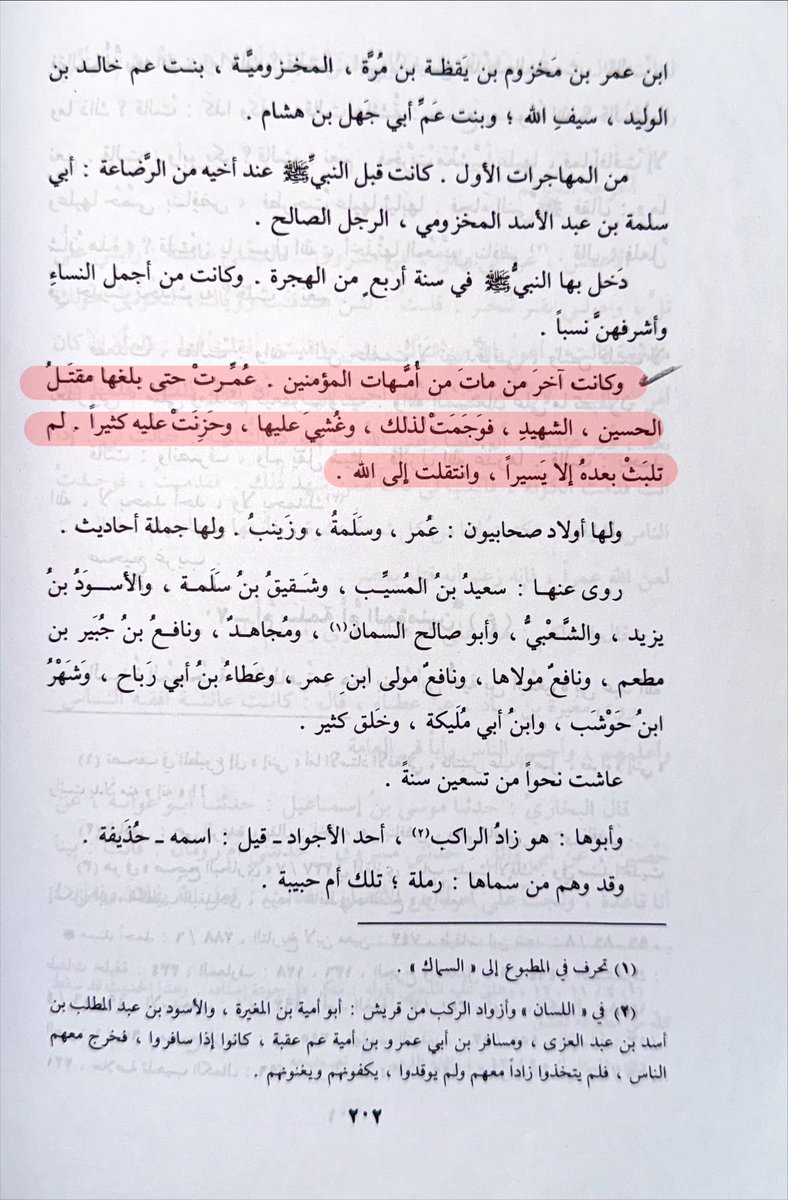 ابن عمر بن مَخزوم بن يَقظة بن مُرَّة ، المخزوميَّة ، بنت عم خالد بن
الوليد ، سيفِ الله ؛ وبنت عَمِّ أبي جهل بن هشام .
من المهاجرات الأول . كانت قبل النبيِّ ﷺ عند أخيه من الرَّضاعة : أبي
سلمة بن عبد الأسد المخزومي ، الرجل الصالح .
دَخل بها النبيُّ ﷺ في سنة أربعٍ من الهجرة . وكانت من أجمل النساءِ
وأشرفهنَّ نسباً .
وكانت آخرَ من ماتَ من أُمَّهات المؤمنين . عُمِّرتْ حتى بلغها مقتَلُ
الحسين ، الشهيدِ ، فوَجَمَتْ لذلك ، وغُشِيَ عليها ، وحَزِنَتْ عليه كثيراً . لم
تلبَثْ بعدهُ إلا يَسيراً ، وانتقلت إلى الله .
ولها أولاد صحابيون : عُمر ، وسَلَمةُ ، وزَينبُ . ولها جملة أحاديث .
روى عنها : سعيدُ بنُ المُسيِّب ، وشَقيقُ بنُ سَلَمة ، والأسوَدُ بنُ
يزيد ، والشَّعْبيُّ ، وأبو صالح السمان(١) ، ومُجاهدٌ ، ونافعُ بنُ جُبَير بن
مطعم ، ونافعٌ مولاها ، ونافعٌ مولى ابنِ عمر ، وعَطاءُ بنُ أبي رَباح ، وشَهْرُ
ابنُ حَوْشَب ، وابنُ أبي مُلَيكة ، وخلق كثير .
عاشت نحواً من تسعين سنةً .
وأبوها : هو زادُ الراكب(٢) ، أحد الأجواد ـ قيل : اسمه ـ حُذَيفة .
وقد وهم من سماها : رملة ؛ تلك أم حبيبة .
(١) تحرف في المطبوع إلى « السماك » .
(٢) في « اللسان » وأزواد الركب من قريش : أبو أمية بن المغيرة ، والأسود بن عبد المطلب بن
أسد بن عبد العزى ، ومسافر بن أبي عمرو بن أمية عم عقبة ، كانوا إذا سافروا ، فخرج معهم
الناس ، فلم يتخذوا زاداً معهم ولم يوقدوا ، يكفونهم ويغنونهم .
٢٠٢